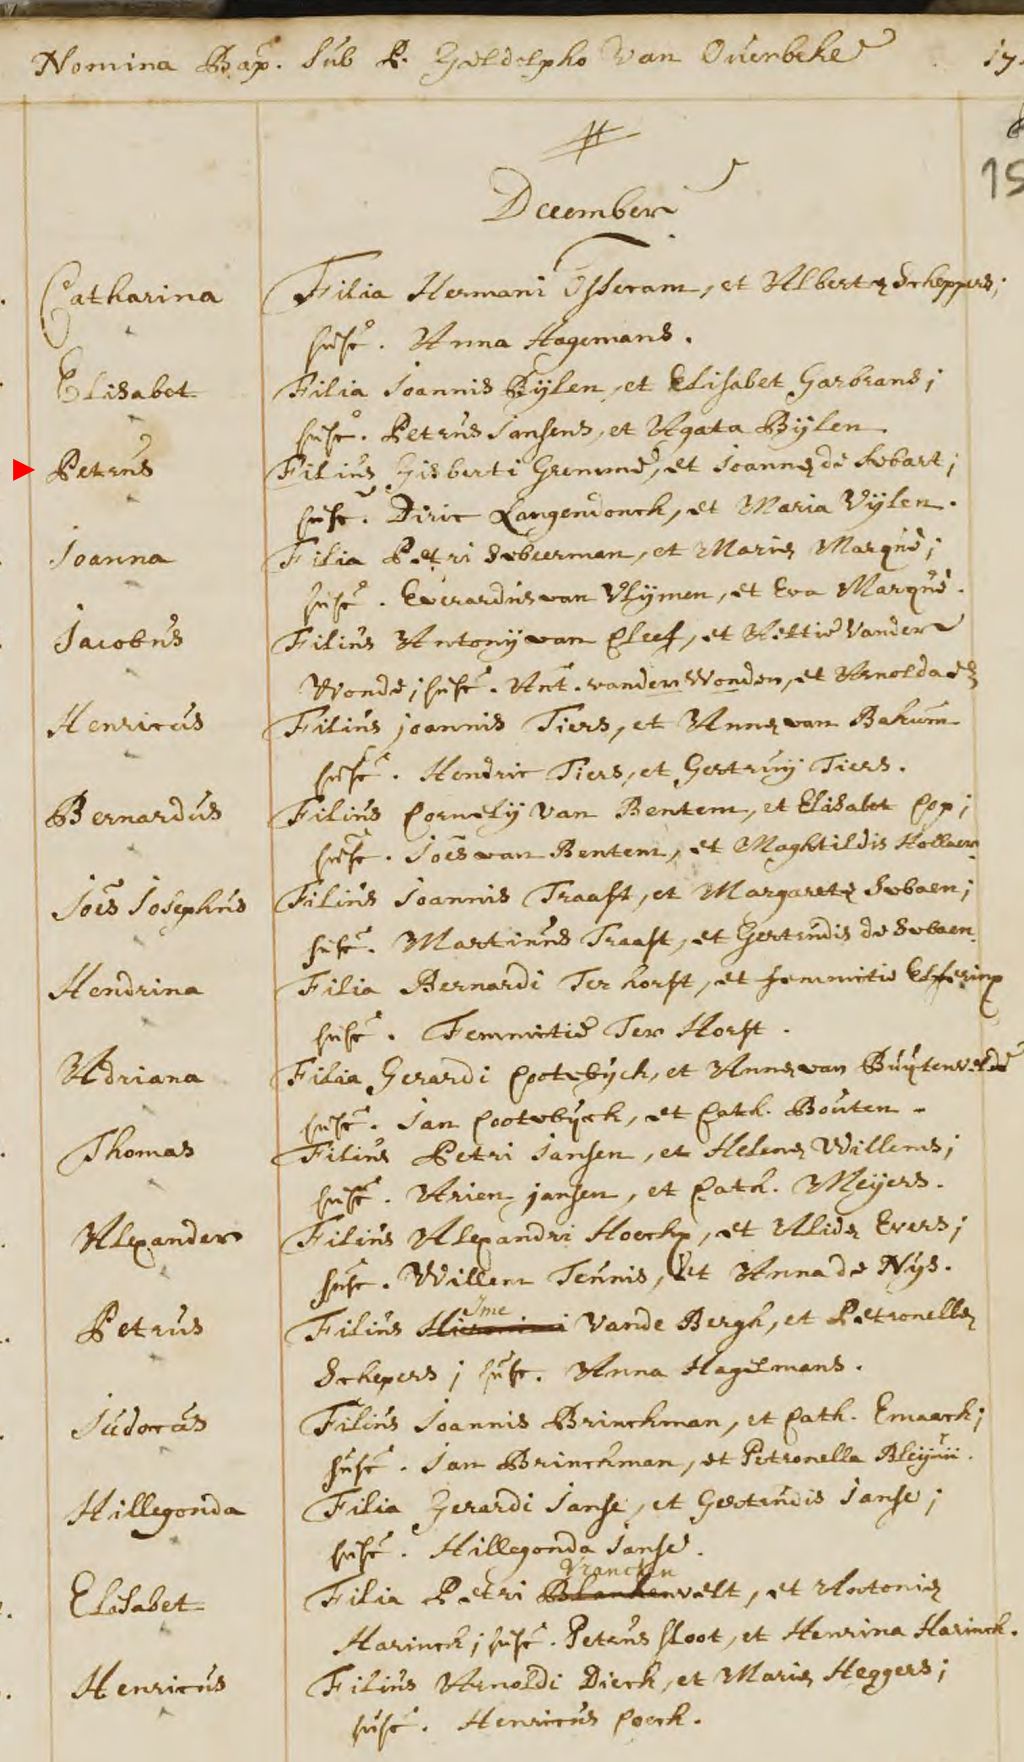 Nomina Bap. sub P. Geldolpho Van Overbeke 17
15
December
Catharina Filia Hermani Osseram, et Albertæ Scheppers;
susc. Anna Hagemans.
Elisabet Filia Joannis Bijlen, et Elisabet Garbrans;
susc. Petrus Jansens, et Agata Bijlen.
Petrus Filius Gisberti Gremme, et Joannæ de Swart;
susc. Diric Langendonck, et Maria Vijlen.
Joanna Filia Petri Sweerman, et Mariæ Marqué;
susc. Everardus van Vlijmen, et Eva Marqué.
Jacobus Filius Antonij van Cleef, et Aeltie Vander
Wonde; susc. Ant. vander Wonden, et Arnolda
Henricus Filius joannis Tiers, et Annæ van Bakum
susc. Hendric Tiers, et Gertruij Tiers.
Bernardus Filius Cornelij Van Bentem, et Elisabet Cop;
susc. Joes van Bentem, et Maghtildis Hollaer
Joes Josephus Filius Joannis Traast, et Margaretæ Swaen;
susc. Martinus Traast, et Gertrudis de Swaen.
Hendrina Filia Bernardi Ter horst, et femmitie Elferinx
susc. Femmitie Ter Horst.
Adriana Filia Gerardi Cootwijck, et Annæ van Buijtenvelde
susc. Jan Cootwijck, et Cath. Bouten.
Thomas Filius Petri Jansen, et Helenæ Willems;
susc. Arien jansen, et Cath. Meijers.
Alexander Filius Alexandri Hoeckx, et Alidæ Evers;
susc. Willem Teunis, et Anna de Nijs.
Jme
Petrus Filius Hieronimi Vande Bergh, et Petronellæ
Schepers; susc. Anna Hagemans.
Judocus Filius Joannis Brinckman, et Cath. Emaack;
susc. Jan Brinckman, et Petronella
Hillegonda Filia Gerardi Janse, et Gertrudis Janse;
susc. Hillegonda Janse.
Vrancken
Elisabet Filia Petri Blankenvelt, et Antoniæ
Harinck; susc. Petrus sloot, et Henrina Harinck.
Henricus Filius Arnoldi Dieck, et Mariæ Heggers;
susc. Henricus Coeck.